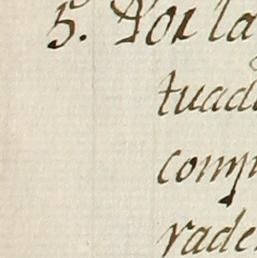 5. Por la
tuada
comp
rade